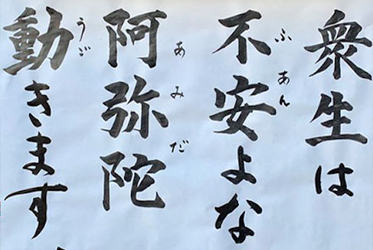 衆生は
不安よな
ふあん
阿弥陀
あみだ
動きます
うご